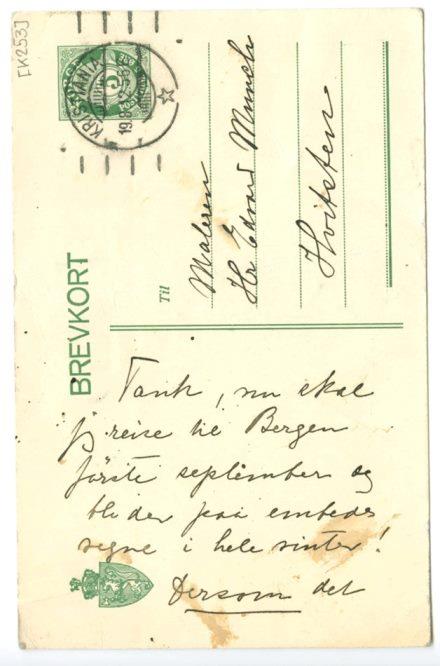 [K253]
KRISTIANIA
5
BREVKORT
Til
Maleren
Hr Edvard Munch
Hvitsten
Tænk, nu skal
jeg reise til Bergen
første september og
bli der paa embeds
vegne i hele vinter!
Dersom det